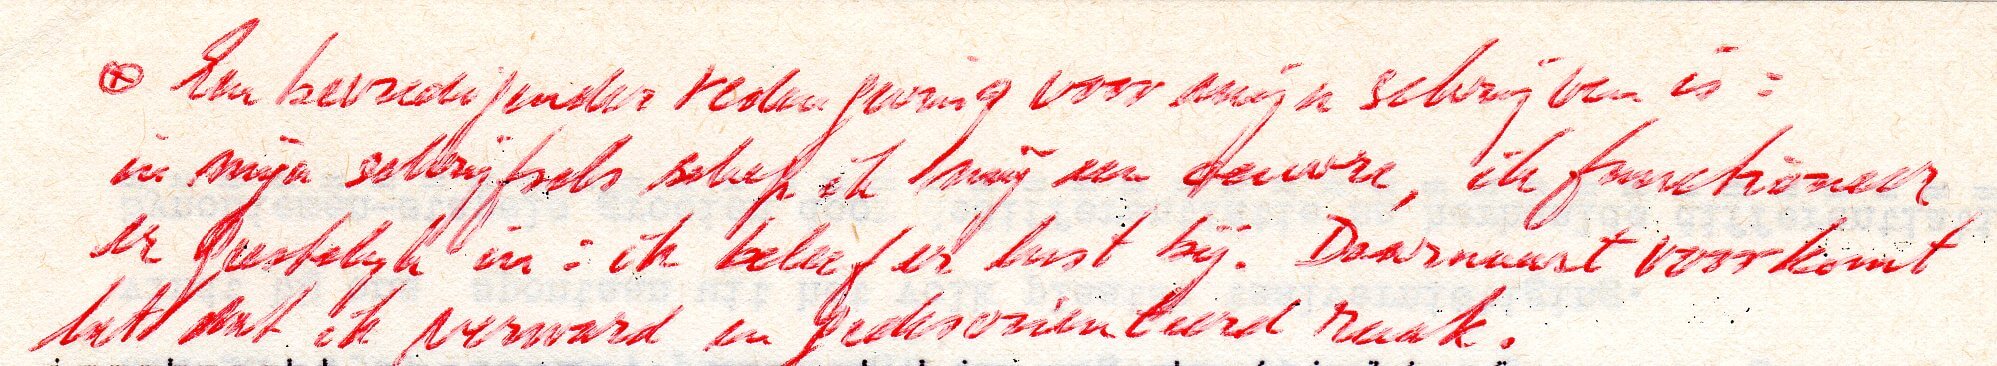 ⊗ Een bevredigender redengeving voor mijn schrijven is:
in mijn schrijfsels schep ik mij een oeuvre, ik functioneer
er geestelijk in: ik beleef er lust bij. Daarnaast voorkomt
het dat ik verward en gedesoriënteerd raak.